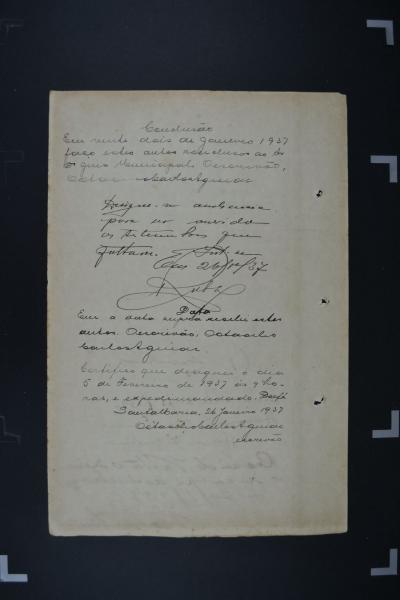 Conclusão
Em vinte dois de Janeiro 1937
faço estes autos conclusos ao Sr
Juiz Municipal. O escrivão,
Carlos Aguiar
Designe-se audiencia
para ser ouvida
as testemunhas que
faltam.
26/1/37
Data
Em a data supra recebi estes
autos. O escrivão, Octacilio
Carlos Aguiar
Certifico que designei o dia
5 de Fevereiro de 1937 ás 9 ho-
ras, e expedi mandado. Dou fé
Santa Maria, 26 Janeiro 1937
Octacilio Carlos Aguiar
escrivão